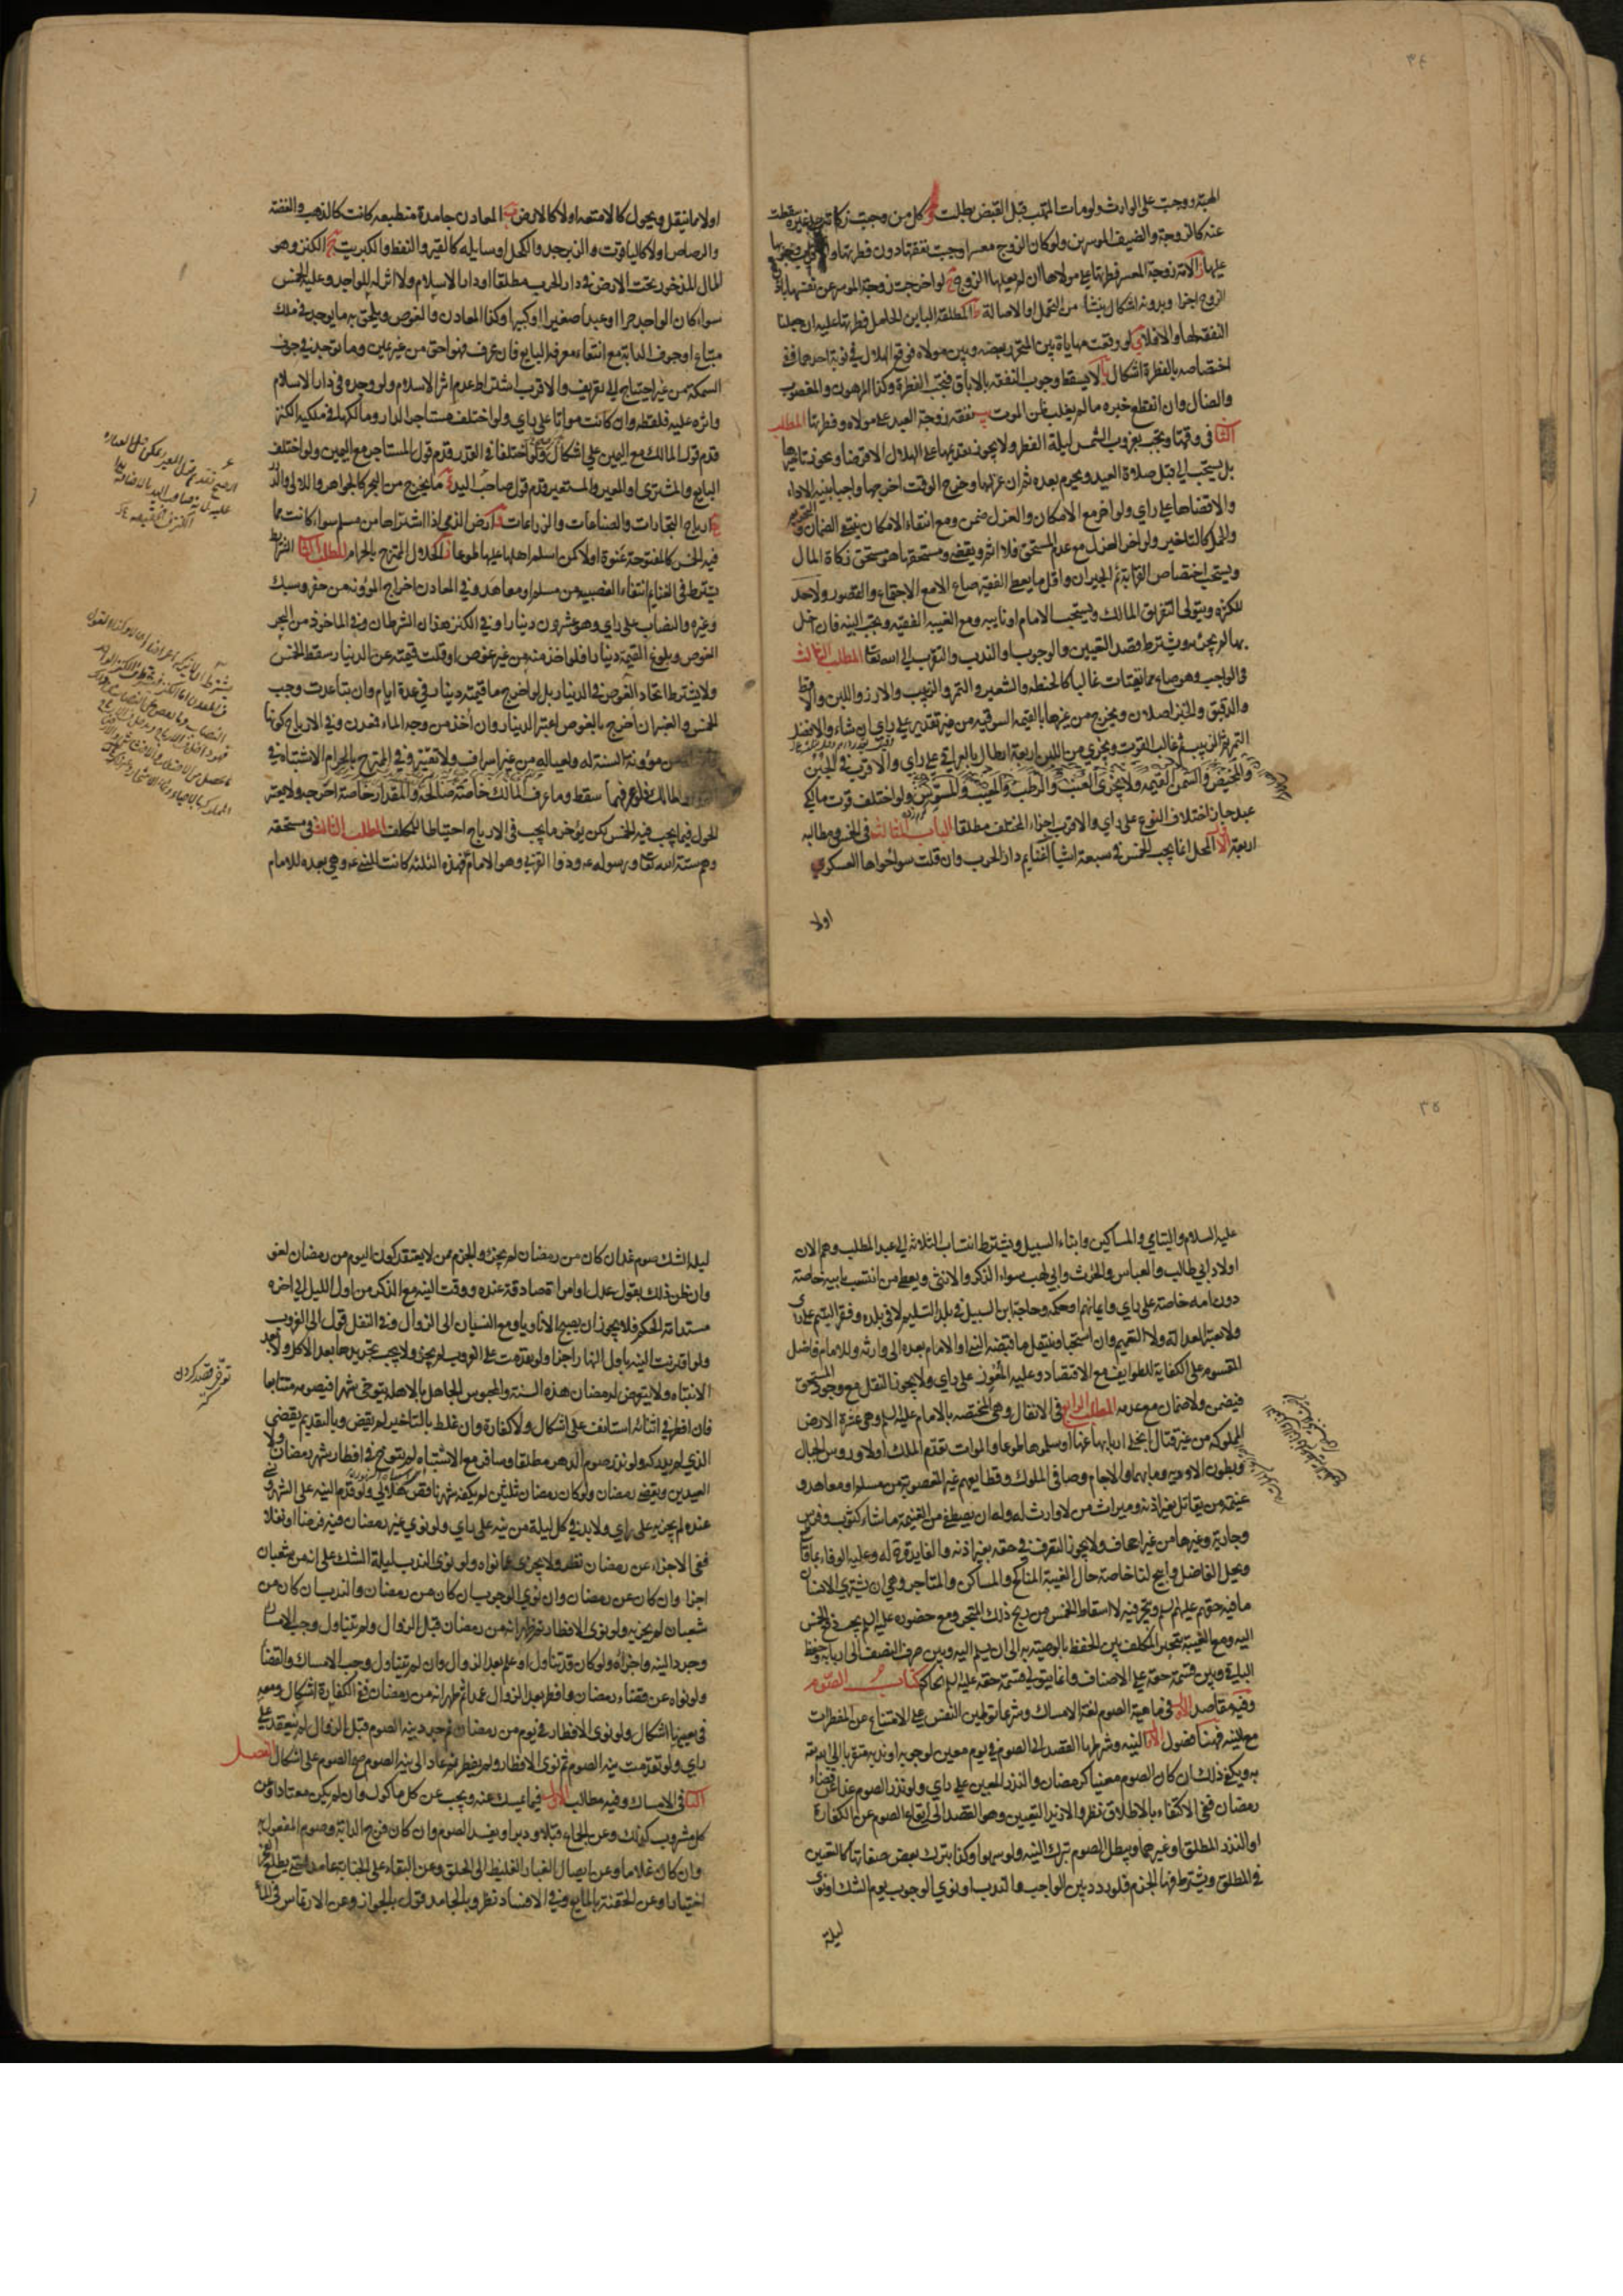 ٣٤
الهبة ووجبت على الوارث ولو مات المتهب قبل القبض بطلت و كل من وجبت زكاته على غيره سقطت
عنه كالزوجة والضيف الموسرين ولو كان الزوج معسرا وجبت نفقتها دون فطرتها والاقرب وجوبها
عليها ز الامة زوجة المعسر فطرتها على مولاها ان لم يعلها الزوج ح لو اخرجت زوجة الموسر عن نفسها باذن
الزوج اجزا وبدونه اشكال ينشا من التحمل والاصالة ط المطلقة الباين الحامل فطرتها عليه ان جعلنا
النفقة لها والا فلا ي لو وقعت مهاياة بين المتحرر بعضه وبين مولاه فوقع الهلال في نوبة احدهما ففي
اختصاصه بالفطرة اشكال يا لا يسقط وجوب النفقة بالاباق فتجب الفطرة وكذا المرهون والمغصوب
والضال وان انقطع خبره ما لم يغلب ظن الموت يب نفقة زوجة العبد على مولاه وفطرتها المطلب
الثاني في وقتها وتجب بغروب الشمس ليلة الفطر ولا يجوز تقديمها على الهلال الا قرضا ويجوز تاخيرها
بل يستحب الى قبل صلاة العيد ويحرم بعده ثم ان عزلها وخرج الوقت اخرجها واجبا بنية الاداء
والا قضاها على راي ولو اخر مع الامكان والعزل ضمن ومع انتفاء الامكان ينتفي الضمان و
والحمل كالتاخير ولو اخر العزل مع عدم المستحق فلا اثم ويقضي ومستحقها هو مستحق زكاة المال
ويستحب اختصاص القرابة ثم الجيران واقل ما يعطى الفقير صاع الا مع الاجتماع والقصور ولا حد
للكثرة ويتولى التفريق المالك ويستحب الامام او نايبه ومع الغيبة الفقيه وتجب النية فان اخل
بها لم يجزئه ويشترط قصد التعيين والوجوب او الندب والتقرب الى الله تعالى المطلب الثالث
في الواجب وهو صاع مما يقتات غالبا كالحنطة والشعير والتمر والزبيب والارز واللبن والاقط
والدقيق والخبز اصلان ويخرج من غيرها بالقيمة السوقية من غير تقدير على راي ان شاء والافضل
التمر ثم الزبيب ثم غالب القوت ويجزي من اللبن اربعة ارطال بالعراقي على راي والاقرب في الجبن
والمخيض والسمن القيمة ولا يجزي العنب والرطب والمعيب والمسوس ولو اختلف قوت مالكي
عبد جاز اختلاف النوع على راي والاقرب اجزاء المختلف مطلقا الباب الثالث في الخمس ومطالبه
اربعة الاول المحل انما يجب الخمس في سبعة اشيا ا غنايم دار الحرب وان قلت سواء حواها العسكر
اولا
او لا ما ينقل ويحول كالامتعة او لا كالارض ب المعادن جامدة منطبعة كانت كالذهب والفضة
والرصاص او لا كالياقوت والزبرجد والكحل او سايلة كالقير والنفط والكبريت ج الكنز وهو
المال المذخور تحت الارض في دار الحرب مطلقا او دار الاسلام ولا اثر له للواجد وعليه الخمس
سواء كان الواجد حرا او عبدا صغيرا او كبيرا وكذا المعادن والغوص ويلحق به ما يوجد في ملك
مبتاع او جوف الدابة مع انتفاء معرفة البايع فان عرف فهو احق من غير يمين وما يوجد في جوف
السمكة من غير احتياج الى تعريف والاقرب اشتراط عدم اثر الاسلام ولو وجده في دار الاسلام
واثره عليه فلقطة وان كانت مواتا على راي ولو اختلف مستاجر الدار ومالكها في ملكية الكنز
قدم قول المالك مع اليمين على اشكال ولو اختلفا في القدر قدم قول المستاجر مع اليمين ولو اختلف
البايع والمشتري او المعير والمستعير قدم قول صاحب اليد د ما يخرج من البحر كالجواهر واللالي والدر
ه ارباح التجارات والصناعات والزراعات و ارض الذمي اذا اشتراها من مسلم سواء كانت مما
فيه الخمس كالمفتوحة عنوة او لا كمن اسلم اهلها عليها طوعا ز الحلال الممتزج بالحرام المطلب الثاني الشرايط
يشترط في الغنايم انتفاء الغصبية من مسلم او معاهد وفي المعادن اخراج المؤونة من حفر وسبك
وغيره والنصاب على راي وهو عشرون دينارا وفي الكنز هذان الشرطان وفي الماخوذ من البحر
الغوص وبلوغ القيمة دينارا فلو اخذ منه من غير غوص او قلت قيمته عن الدينار سقط الخمس
ولا يشترط اتحاد الغوص في الدينار بل لو اخرج ما قيمته دينار في عدة ايام وان تباعدت وجب
الخمس والعنبر ان اخرج بالغوص اعتبر الدينار وان اخذ من وجه الماء فمعدن وفي الارباح كونها
من مؤونة السنة له ولعياله من غير اسراف ولا تقتير وفي الممتزج بالحرام الاشتباه في
والمالك فلو عرفهما سقط وما عرف المالك خاصة صالحه والمقدار خاصة اخرجه ولا يعتبر
الحول فيما يجب فيه الخمس لكن يؤخر ما يجب في الارباح احتياطا للمكلف المطلب الثالث في مستحقه
وهم ستة الله تعالى ورسوله وذوا القربى وهو الامام فهذه الثلثة كانت للنبي وهي بعده للامام
٣٥
عليه السلام واليتامى والمساكين وابناء السبيل ويشترط انتساب الثلاثة الى عبد المطلب وهم الان
اولاد ابي طالب والعباس والحرث وابي لهب سواء الذكر والانثى ويعطى من انتسب بابيه خاصة
دون امه خاصة على راي وايمانهم او حكمه وحاجة ابن السبيل في بلد التسليم لا في بلده وفقر اليتيم على راي
ولا تعتبر العدالة ولا التعميم وان استحبا وينتقل ما قبضه النبي او الامام بعده الى وارثه وللامام فاضل
المقسوم على الكفاية للطوايف مع الاقتصاد وعليه المعوز على راي ولا يجوز النقل مع وجود المستحق
فيضمن ولا ضمان مع عدمه المطلب الرابع في الانفال وهي المختصة بالامام عليه السلم وهي عشرة الارض
المملوكة من غير قتال انجلى اربابها عنها او سلموها طوعا والموات تقدم الملك او لا ورءوس الجبال
وبطون الاودية وما بهما والاجام وصافى الملوك وقطايعهم غير المغصوبة من مسلم او معاهد و
غنيمة من يقاتل بغير اذنه وميراث من لا وارث له وله ان يصطفي من الغنيمة ما شاء كثوب وفرس
وجارية وغيرها من غير اجحاف ولا يجوز التصرف في حقه بغير اذنه والفايدة له وعليه الوفاء بما قاطع
ويحل الفاضل وابيح لنا خاصة حال الغيبة المناكح والمساكن والمتاجر وهي ان يشتري الانسان
ما فيه حقهم عليهم السلم ويتجر فيه لا اسقاط الخمس من ربح ذلك المتجر ومع حضوره عليه السلم يجب دفع الخمس
اليه ومع الغيبة يتخير المكلف بين الحفظ بالوصية به الى ان يسلم اليه وبين صرف النصف الى اربابه وحفظ
الباقي وبين قسمة حقه على الاصناف وانما يتولى قسمة حقه عليه السلم الحاكم كتاب الصوم
وفيه مقاصد الاول في ماهيته الصوم لغة الامساك وشرعا توطين النفس على الامتناع عن المفطرات
مع النية فهنا فصول الاول النية وشرطها القصد الى الصوم في يوم معين لوجوبه او ندبه متقربا الى الله تعالى
به ويكفي ذلك ان كان الصوم معينا كرمضان والنذر المعين على راي ولو نذر الصوم غدا عن قضاء
رمضان ففي الاكتفاء بالاطلاق نظر والا افتقر الى التعيين وهو القصد الى ايقاع الصوم عن الكفارة
او النذر المطلق او غيرهما ويبطل الصوم بترك النية ولو سهوا وكذا بترك بعض صفاتها كالتعيين
في المطلق ويشترط فيها الجزم فلو ردد بين الواجب والندب او نوى الوجوب يوم الشك او نوى
ليلة
ليلة الشك صوم غد ان كان من رمضان لم يجزئه والجزم ممن لا يعتقد كون اليوم من رمضان لغو
وان ظن ذلك بقول عدل او امراة صادقة عنده ووقت النية مع الذكر من اول الليل الى اخره
مستدامة الحكم فلا يجوز ان يصبح الا ناويا ومع النسيان الى الزوال وفي النفل قول الى الغروب
ولو اقترنت النية باول النهار اجزا ولو تقدمت على الغروب لم يجزئ ولا يجب تجديدها بعد الاكل ولا بعد
الانتباه ولا يتعرض لرمضان هذه السنة والمحبوس الجاهل بالاهلة يتوخى شهرا فيصومه متتابعا
فان افطر في اثنائه استانف على اشكال ولا كفارة وان غلط بالتاخير لم يقض وبالتقديم يقضي
الذي لم يدركه ولو نذر صوم الدهر مطلقا وسافر مع الاشتباه لم يتوخ في افطار شهر رمضان ولا
العيدين ويقضي رمضان ولو كان رمضان ثلثين لم يكفه شهر ناقص هلالي ولو قدم النية على الشهر
عنده لم يجزيه على راي ولا بد في كل ليلة من نية على راي ولو نوى غير رمضان فيه فرضا او نفلا
ففي الاجزاء عن رمضان نظر ولا يجزي عما نواه ولو نوى الندب ليلة الشك على انه من شعبان
اجزا وان كان عن رمضان وان نوى الوجوب ان كان من رمضان والندب ان كان من
شعبان لم يجزيه ولو نوى الافطار فظهر انه من رمضان قبل الزوال ولم يتناول وجب الامساك
وجدد النية واجزاه ولو كان قد تناول او علم بعد الزوال وان لم يتناول وجب الامساك والقضاء
ولو نواه عن قضاء رمضان وافطر بعد الزوال عمدا ثم ظهر انه من رمضان ففي الكفارة اشكال ومعه
في تعيينها اشكال ولو نوى الافطار في يوم من رمضان ثم جدد نية الصوم قبل الزوال لم ينعقد على
راي ولو تقدمت نية الصوم ثم نوى الافطار ولم يفطر ثم عاد الى نية الصوم صح الصوم على اشكال الفصل
الثاني في الامساك وفيه مطالب الاول فيما يمسك عنه ويجب عن كل ماكول وان لم يكن معتادا وعن
كل مشروب كذلك وعن الجماع قبلا ودبرا ويفسد الصوم وان كان فرج الدابة وصوم المفعول به
وان كان غلاما وعن ايصال الغبار الغليظ الى الحلق وعن البقاء على الجنابة عامدا حتى يطلع الفجر
اختيارا وعن الحقنة بالمايع وفي الافساد نظر وبالجامد قول بالجواز وعن الارتماس في الماء